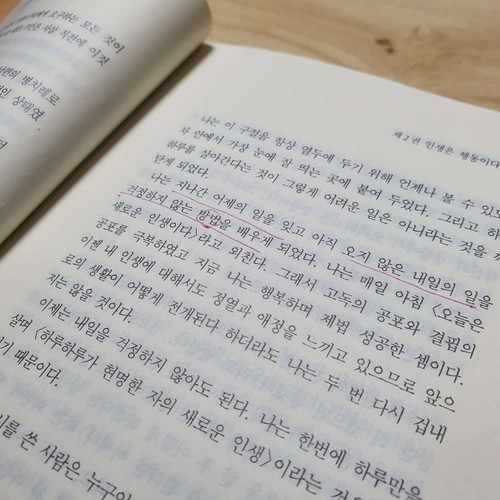 요구하는 모든 것이
직전에 이것
병치레로
상태였
제2권 인생은 행동이다
나는 이 구절을 항상 염두에 두기 위해 언제나 볼 수 있
차 안에서 가장 눈에 잘 띄는 곳에 붙여 두었다. 그리고 하
하루를 살아간다는 것이 그렇게 어려운 일은 아니라는 것을
닫게 되었다.
나는 지나간 어제의 일을 잊고 아직 오지 않은 내일의 일을
걱정하지 않는 방법을 배우게 되었다. 나는 매일 아침 〈오늘은
새로운 인생이다〉라고 외친다. 그래서 고독의 공포와 결핍의
공포를 극복하였고 지금 나는 행복하며 제법 성공한 셈이다.
이젠 내 인생에 대해서도 정열과 애정을 느끼고 있으므로 앞으
로의 생활이 어떻게 전개된다 하더라도 나는 두 번 다시 겁내
지는 않을 것이다.
이제는 내일을 걱정하지 않아도 된다. 나는 한번에 하루만을
살며 〈하루하루가 현명한 자의 새로운 인생〉이라는
기 때문이다.
를 쓴 사람은 누구